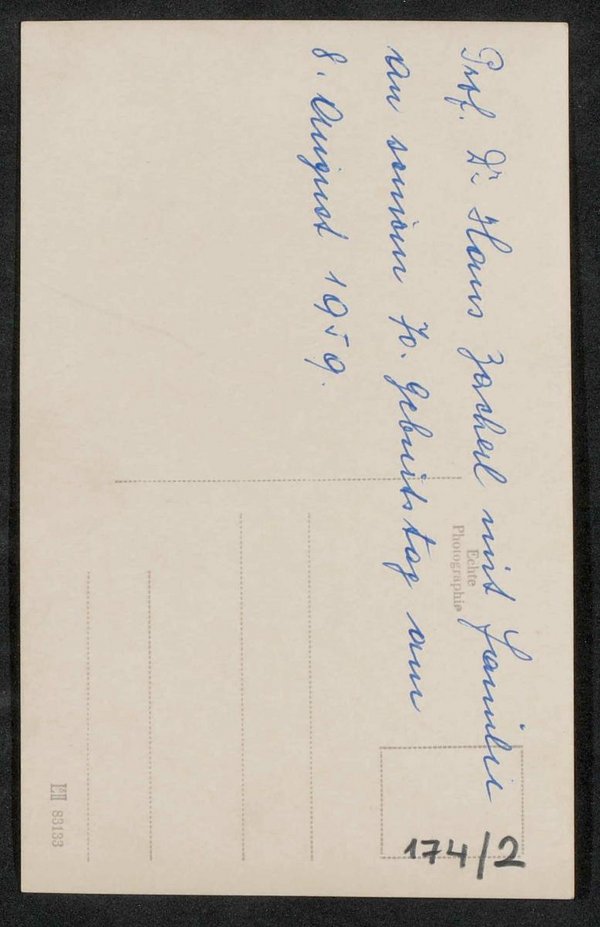 Prof. Dr. Hans Zacherl mit Familie
an seinem 70. Geburtstag am
8. August 1959.
Echte
Photographie
174/2
83133